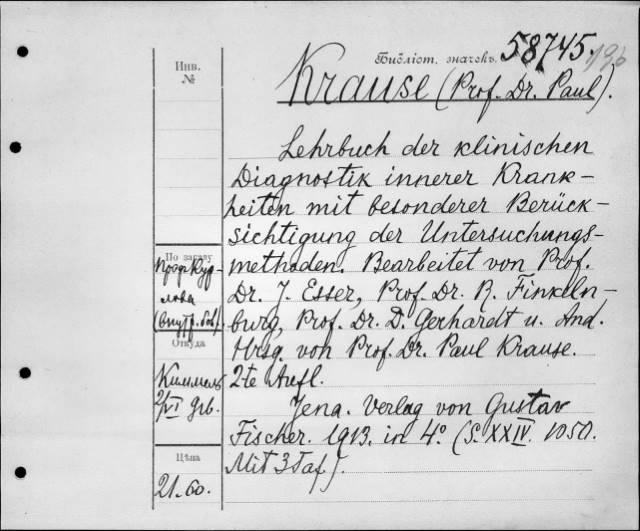 Библіот. значекъ. 58745.
196
Инв.
№
Krause (Prof. Dr. Paul).
Lehrbuch der klinischen
Diagnostik innerer Krank-
heiten mit besonderer Berück-
sichtigung der Untersuchungs-
methoden. Bearbeitet von Prof.
Dr. J. Esser, Prof. Dr. R. Finkeln-
burg, Prof. Dr. D. Gerhardt u. And.
Hrsg. von Prof. Dr. Paul Krause.
2te Aufl.
Jena. Verlag von Gustav
Fischer. 1913. in 4º. (S. XXIV. 1050.
Mit 3 Taf.).
По заказу
Проф. Кур-
лова
(внутр. бол.)
Откуда
Киммель
Цѣна
21.60.